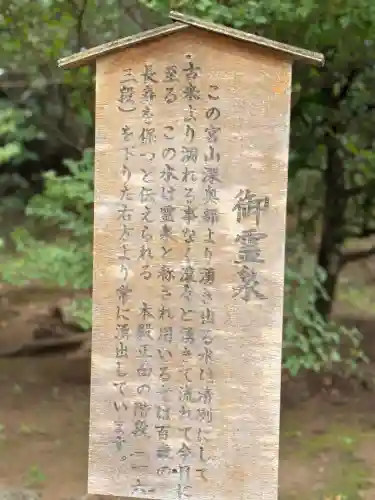 御霊泉
この宮山深奥部より湧き出る水は清冽にして
古来より涸れる事なく滾々と湧きて流れて今日に
至る この水は霊泉と称され用いる は百 の
長寿を保つと伝えられる 本殿正面の階段(一六
三段)を下りた右方より常に湧出しています。